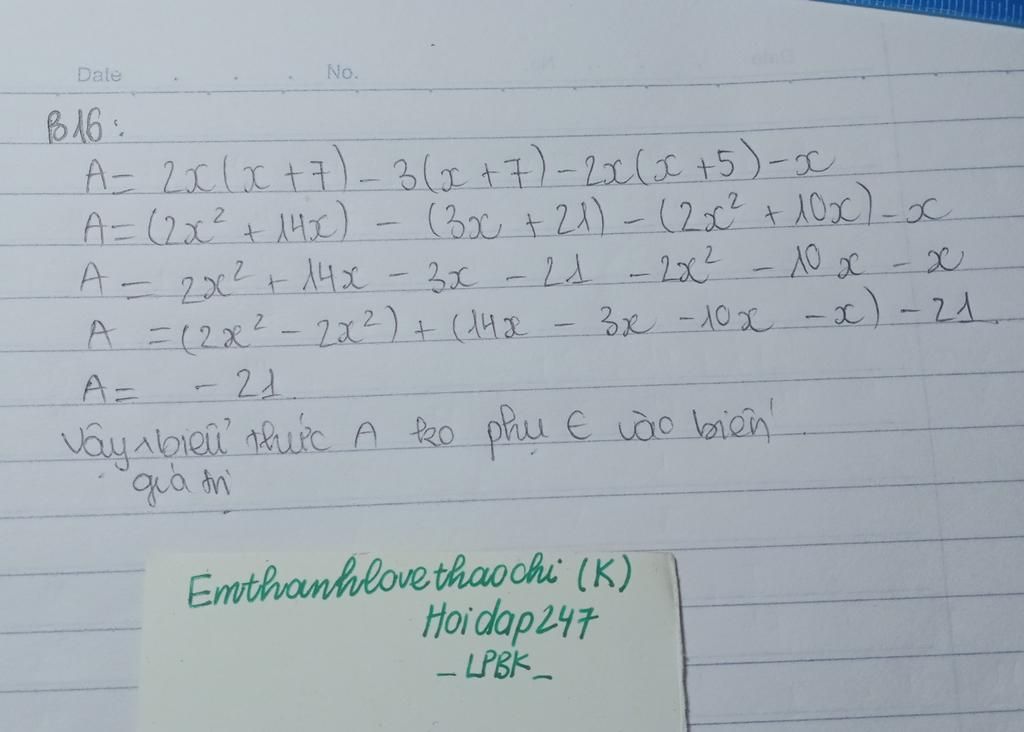 Date . . . No.
B16:
A = 2x(x + 7) - 3(x + 7) - 2x(x + 5) - x
A = (2x² + 14x) - (3x + 21) - (2x² + 10x) - x
A = 2x² + 14x - 3x - 21 - 2x² - 10x - x
A = (2x² - 2x²) + (14x - 3x - 10x - x) - 21
A = - 21.
Vậy ^ biểu thức A ko phụ ∈ vào biến.
giá trị
Emthanhlovethaochi (K)
Hoidap247
_LPBK_